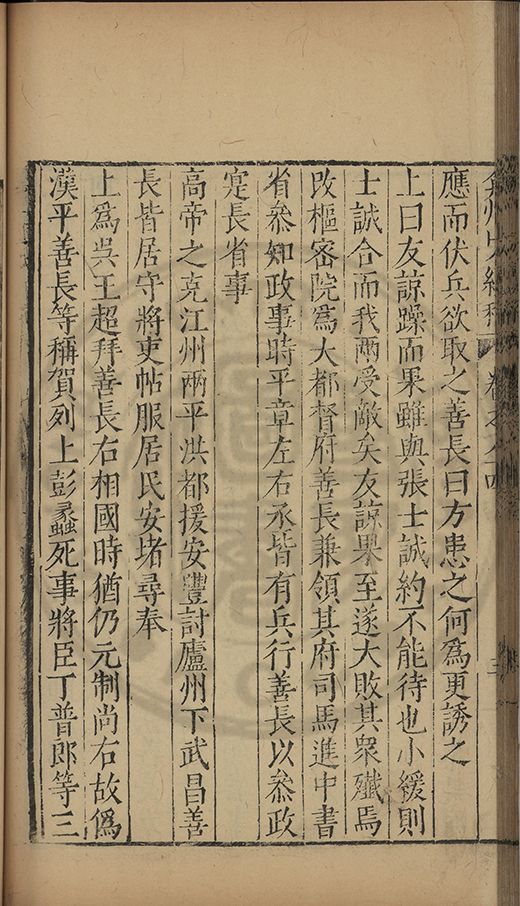 應而伏兵欲取之善長曰方患之何爲更誘之
上曰友諒躁而果雖與張士誠約不能待也小緩則
士誠合而我兩受敵矣友諒果至遂大敗其衆殱焉
改樞密院爲大都督府善長兼領其府司馬進中書
省叅知政事時平章左右丞皆有兵行善長以叅政
寔長省事
高帝之克江州兩平洪都援安豐討廬州下武昌善
長皆居守將吏帖服居民安堵尋奉
上爲吳王超拜善長右相國時猶仍元制尚右故僞
漢平善長等稱賀列上彭蠡死事將臣丁普郎等三